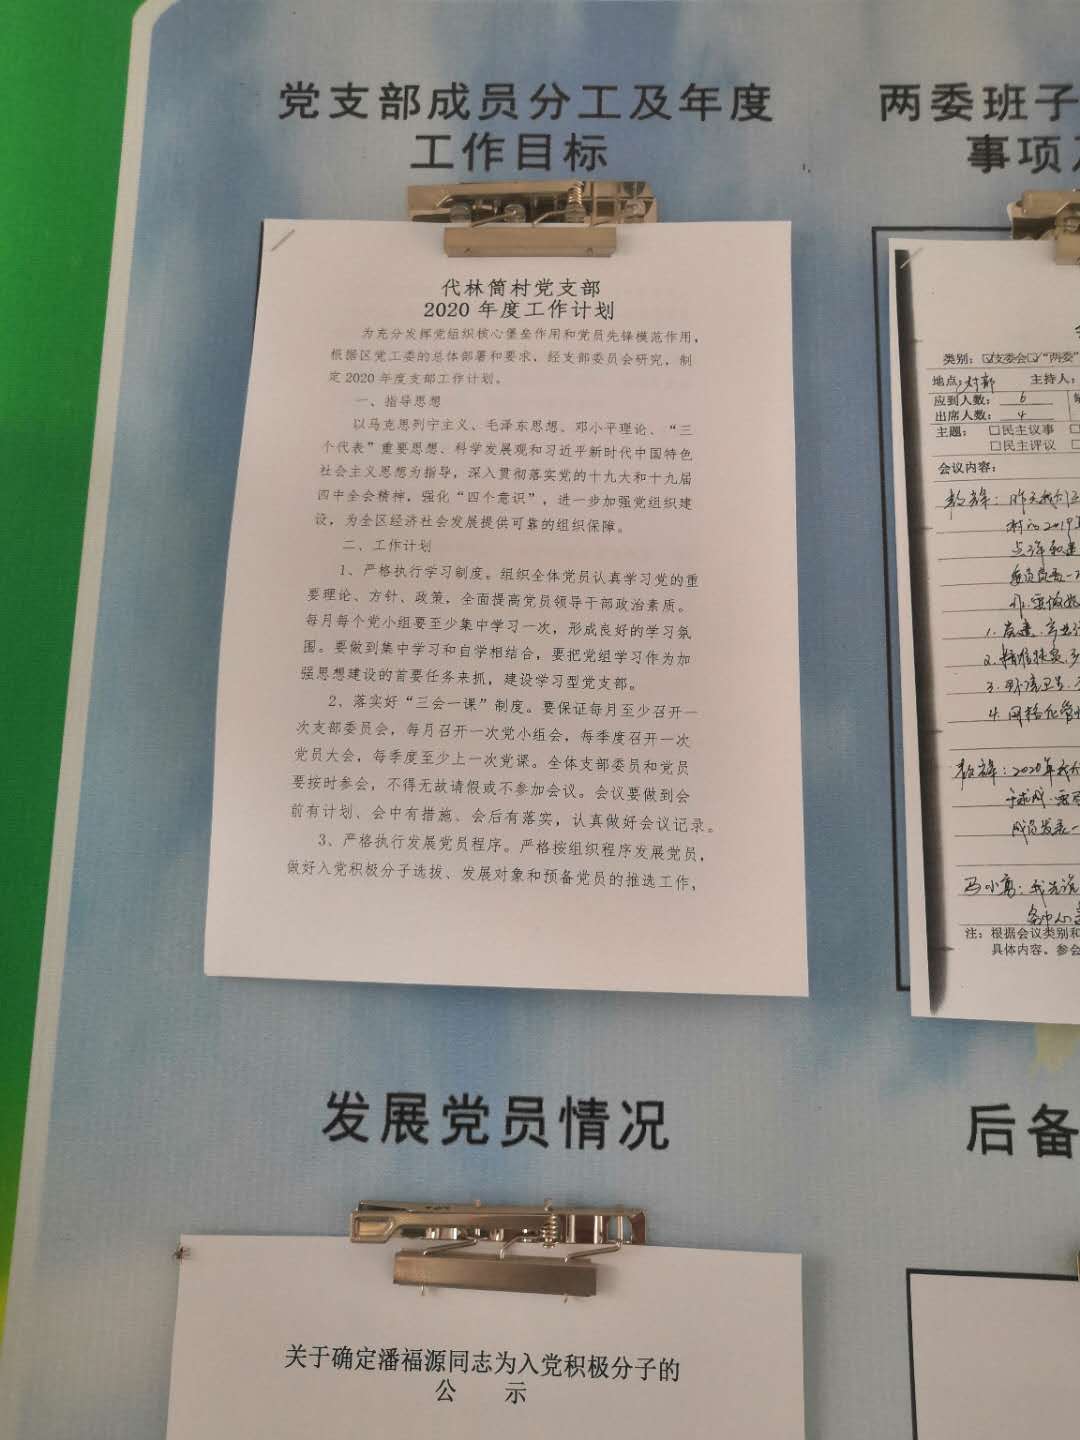 党支部成员分工及年度
工作目标
代林筒村党支部
2020 年度工作计划
为充分发挥党组织核心堡垒作用和党员先锋模范作用，
根据区党工委的总体部署和要求，经支部委员会研究，制
定 2020 年度支部工作计划。
一、指导思想
以马克思列宁主义、毛泽东思想、邓小平理论、“三
个代表”重要思想、科学发展观和习近平新时代中国特色
社会主义思想为指导，深入贯彻落实党的十九大和十九届
四中全会精神，强化“四个意识”，进一步加强党组织建
设，为全区经济社会发展提供可靠的组织保障。
二、工作计划
1、严格执行学习制度。组织全体党员认真学习党的重
要理论、方针、政策，全面提高党员领导干部政治素质。
每月每个党小组要至少集中学习一次，形成良好的学习氛
围。要做到集中学习和自学相结合，要把党组学习作为加
强思想建设的首要任务来抓，建设学习型党支部。
2、落实好“三会一课”制度。要保证每月至少召开一
次支部委员会，每月召开一次党小组会，每季度召开一次
党员大会，每季度至少上一次党课。全体支部委员和党员
要按时参会，不得无故请假或不参加会议。会议要做到会
前有计划、会中有措施、会后有落实，认真做好会议记录。
3、严格执行发展党员程序。严格按组织程序发展党员，
做好入党积极分子选拔、发展对象和预备党员的推选工作，
两委班子
事项
类别：☑支委会☑“两委”
地点：村部 主持人：
应到人数：6
出席人数：4
主题：□民主议事
□民主评议
会议内容：
村的2019
1.党建.产业
2.精准扶贫.
3.环境卫生.
4.网格化管
2020年
成员发表一
冯小富：我先说
注：根据会议类别和
具体内容。参会
发展党员情况
关于确定潘福源同志为入党积极分子的
公 示
后备